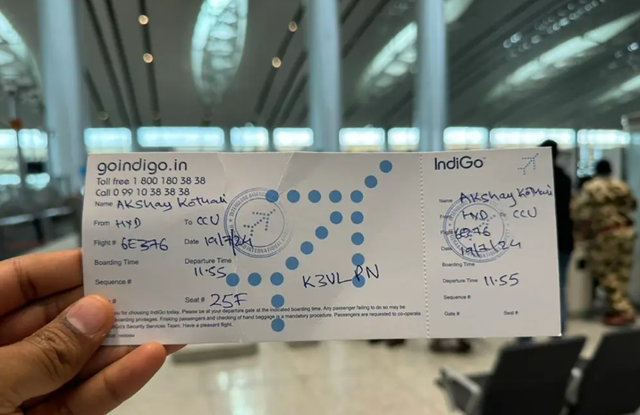 goindigo.in
Toll free 1 800 180 38 38
Call 0 99 10 38 38 38
Name Akshay Kothari
From HYD To CCU
Flight # 6E376 Date 19/7/24
Boarding Time Departure Time
11.55
Sequence #
# Seat # 25F
K3VLPN
you for choosing IndiGo today. Please be at your departure gate at the indicated boarding time. Any passenger failing to do so may be
boarding privileges. Frisking passengers and checking of hand baggage is a mandatory procedure. Passengers are requested to co-operate
IndiGo's Security Services Team. Have a pleasant flight.
IndiGo
Name
Akshay Kothari
From HYD CCU
Flight 6E376
Date 19/7/24
Boarding Time
Departure Time 11.55
Sequence #
Gate # Seat #